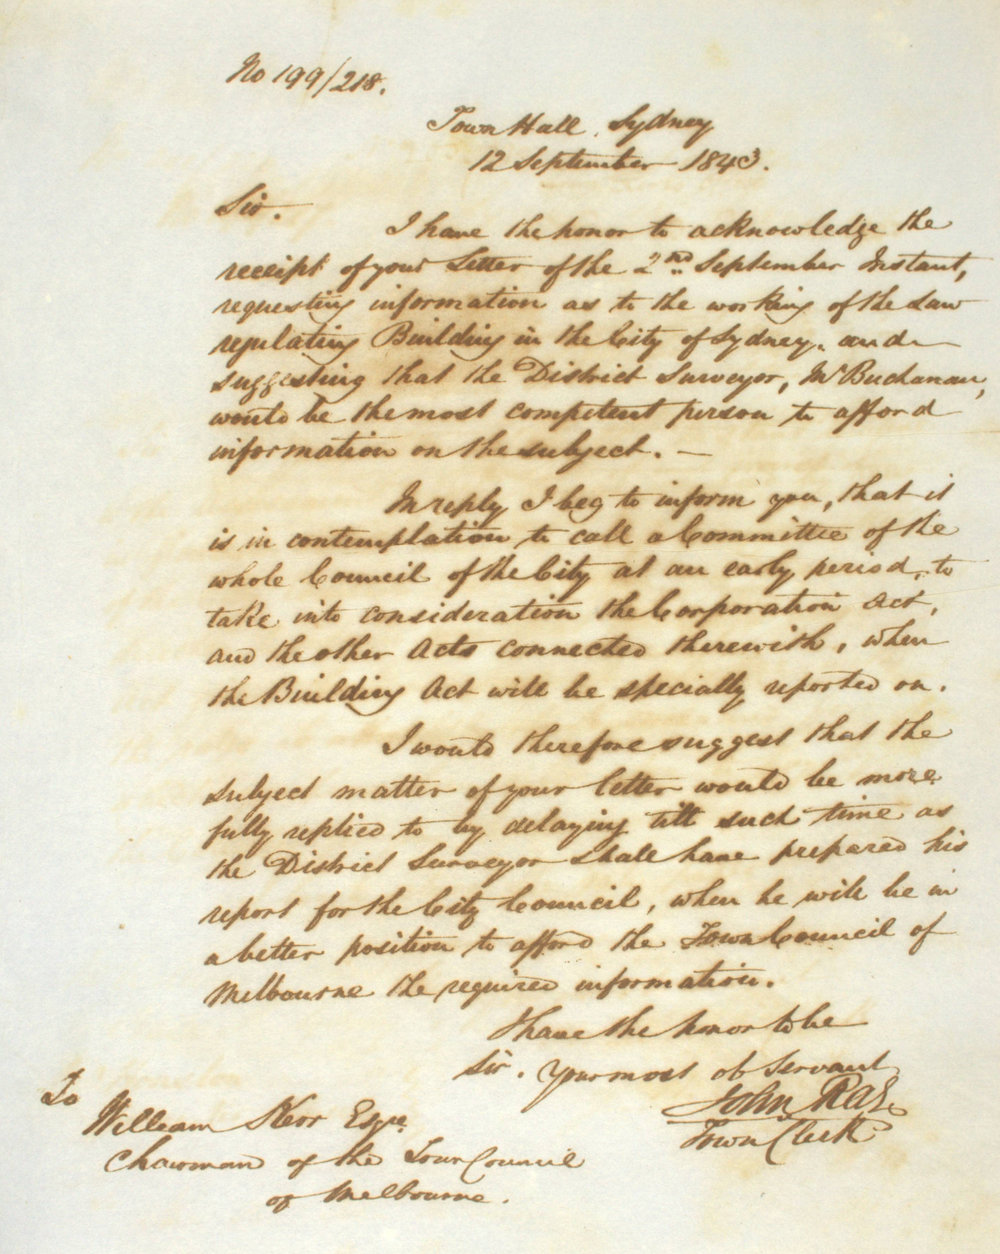 No 199/218.
Town Hall, Sydney
12 September 1843.
Sir.
I have the honor to acknowledge the
receipt of your Letter of the 2nd. September Instant,
requesting information as to the working of the Law
regulating Building in the City of Sydney, and
suggesting that the District Surveyor, Mr Buchanan,
would be the most competent person to afford
information on the subject. —
In reply I beg to inform you, that it
is in contemplation to call a Committee of the
whole Council of the City at an early period, to
take into consideration the Corporation Act,
and the other Acts connected therewith, when
the Building Act will be specially reported on.
I would therefore suggest that the
subject matter of your letter would be more
fully replied to by delaying till such time as
the District Surveyor shall have prepared his
report for the City Council, when he will be in
a better position to afford the Town Council of
Melbourne the required information.
I have the honor to be
Sir. Your most ob Servant
John Rae
Town Clerk
To
William Kerr Esqre.
Chairman of the Town Council
of Melbourne.